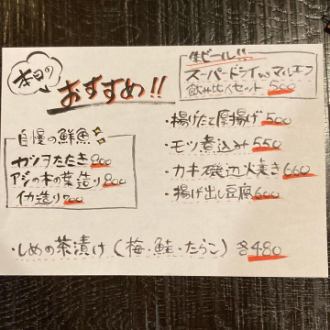 本日の
おすすめ!!
生ビール!!
スーパードライ vs マルエフ
飲み比べセット 500
自慢の鮮魚
カツオたたき 800
アジの木の葉造り 800
イカ造り 700
・揚げたて厚揚げ 500
・モツ煮込み 550
・カキ磯辺火焼き 660
・揚げ出し豆腐 600
・しめの茶漬け(梅・鮭・たらこ) 各480